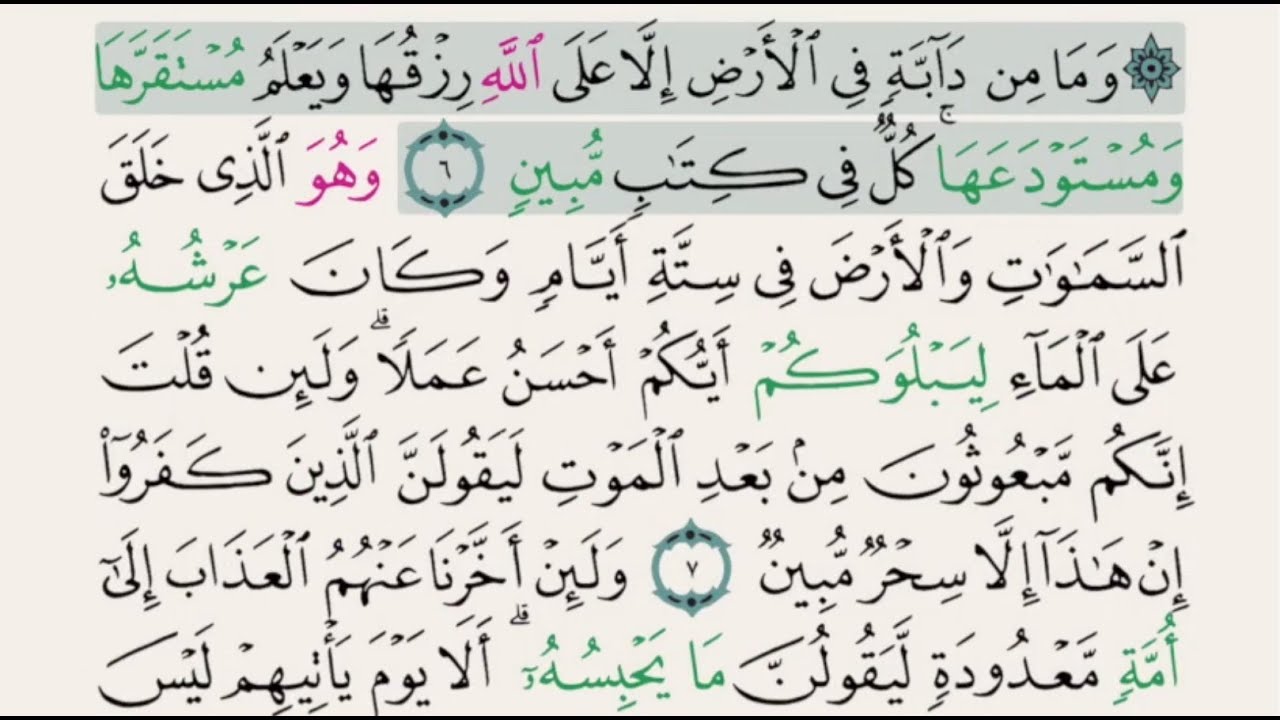 ۞ وَمَا مِن دَآبَّةٍ فِى ٱلْأَرْضِ إِلَّا عَلَى ٱللَّهِ رِزْقُهَا وَيَعْلَمُ مُسْتَقَرَّهَا
وَمُسْتَوْدَعَهَا ۚ كُلٌّ فِى كِتَٰبٍ مُّبِينٍ ٦ وَهُوَ ٱلَّذِى خَلَقَ
ٱلسَّمَٰوَٰتِ وَٱلْأَرْضَ فِى سِتَّةِ أَيَّامٍ وَكَانَ عَرْشُهُۥ
عَلَى ٱلْمَآءِ لِيَبْلُوَكُمْ أَيُّكُمْ أَحْسَنُ عَمَلًا ۗ وَلَئِن قُلْتَ
إِنَّكُم مَّبْعُوثُونَ مِنۢ بَعْدِ ٱلْمَوْتِ لَيَقُولَنَّ ٱلَّذِينَ كَفَرُوٓا۟
إِنْ هَٰذَآ إِلَّا سِحْرٌ مُّبِينٌ ٧ وَلَئِنْ أَخَّرْنَا عَنْهُمُ ٱلْعَذَابَ إِلَىٰٓ
أُمَّةٍ مَّعْدُودَةٍ لَّيَقُولُنَّ مَا يَحْبِسُهُۥٓ ۗ أَلَا يَوْمَ يَأْتِيهِمْ لَيْسَ